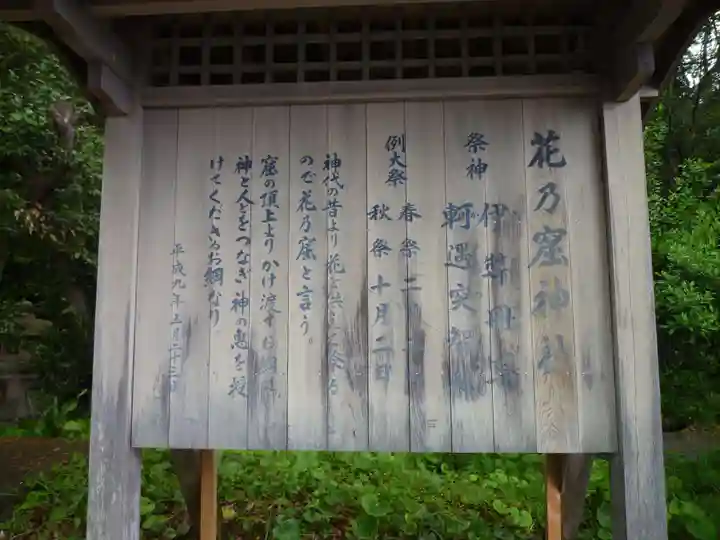 花乃窟神社
祭神 伊弉冊尊
軻遇突智
例大祭 春祭二月二
秋祭十月二日
神代の昔より花を 祭る
ので花乃窟と言う。
窟の頂上よりかけ渡す
神と人とをつなぎ神の恵を授
けてくださるお綱なり。
平成九年 月二十三日